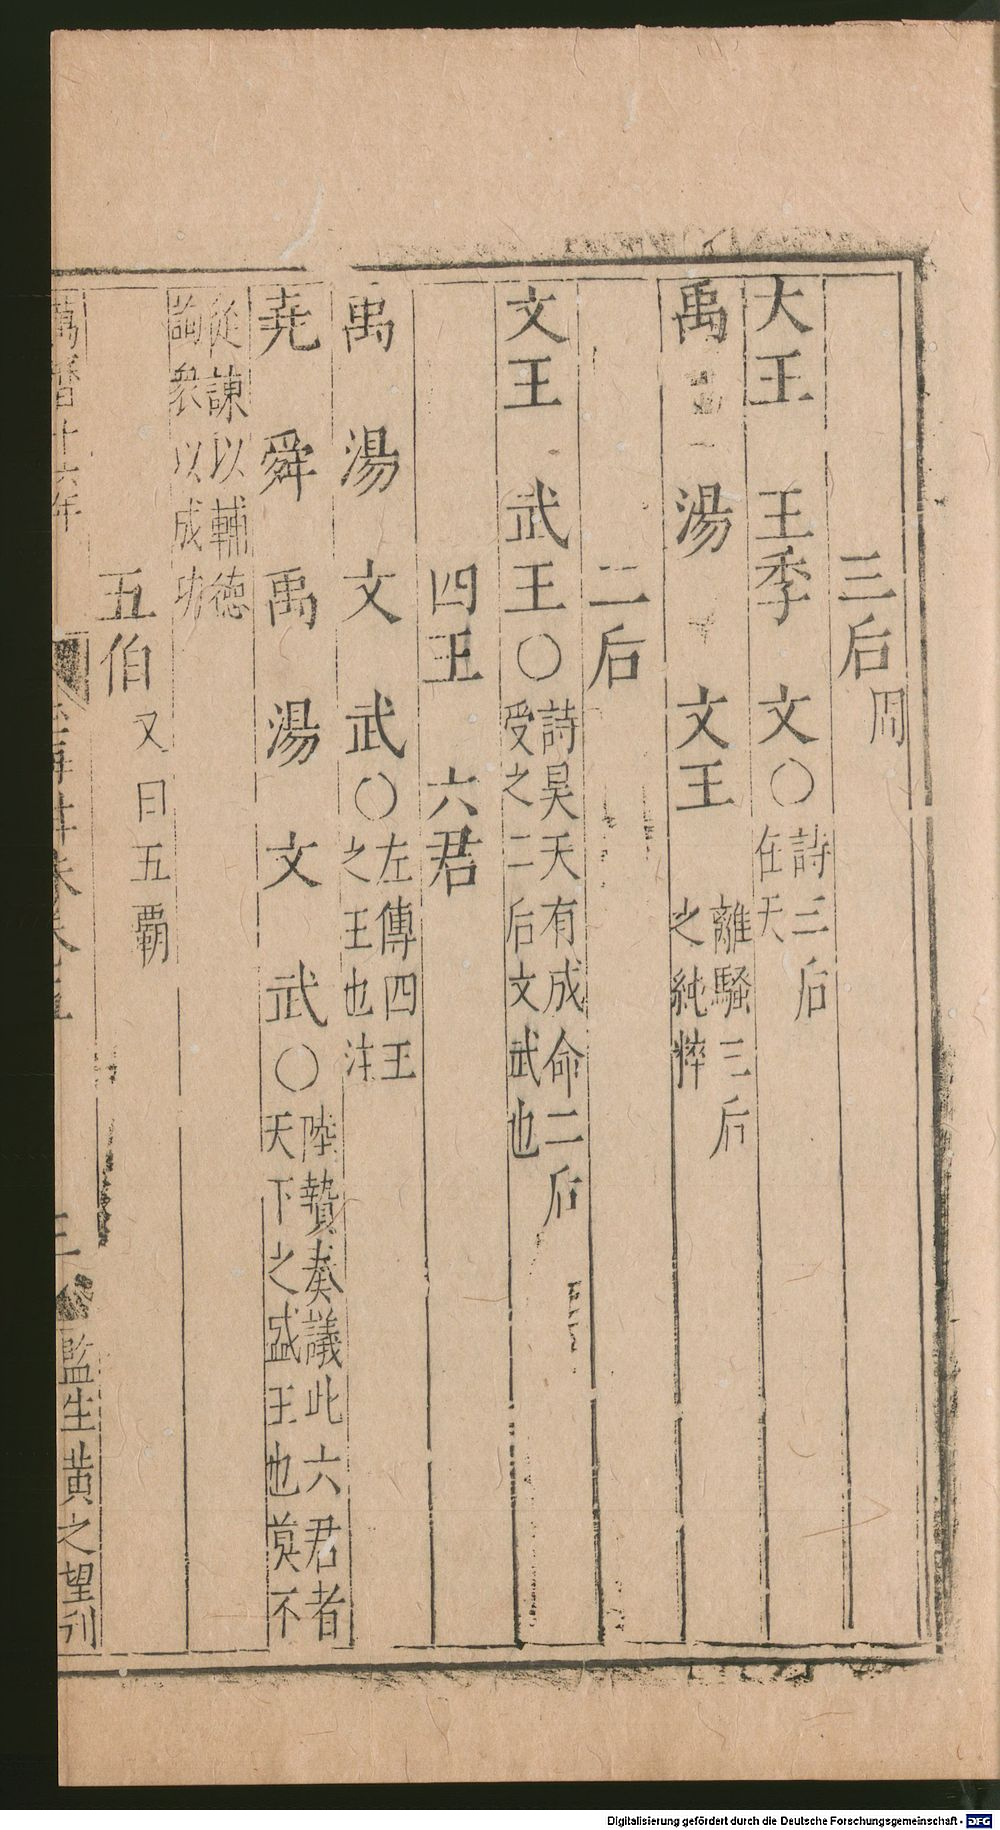 三后周
大王 王季 文〇詩三后在天
禹 湯 文王 離騷三后之純粹
二后
文王 武王〇詩昊天有成命二后受之二后文武也
四王 六君
禹 湯 文 武〇左傳四王之王也注
堯 舜 禹 湯 文 武〇陸贄奏議此六君者天下之盛王也莫不
從諫以輔德詢衆以成功
五伯又曰五霸
萬曆十六年
監生黃之望刊
Digitalisierung gefördert durch die Deutsche Forschungsgemeinschaft - DFG